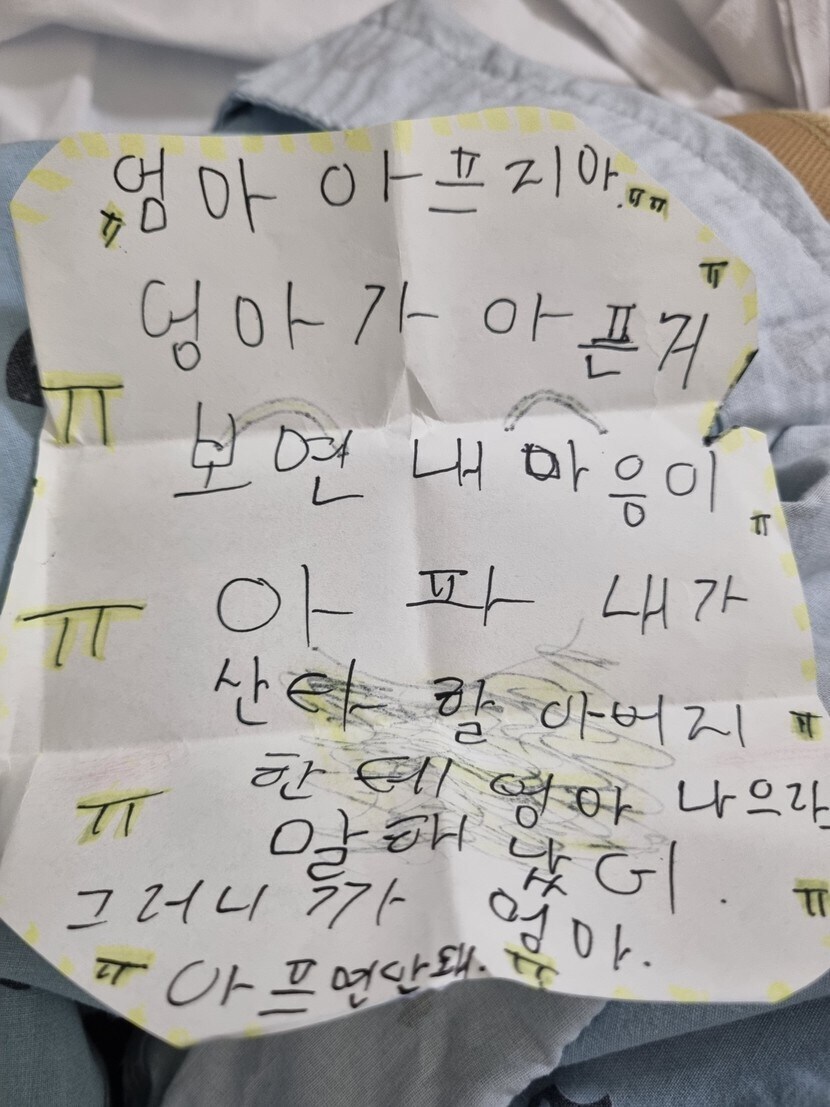 엄마 아프지마. ㅠㅠ
ㅠ
엄마가 아픈거
ㅠ
ㅠ
보면 내 마음이
ㅠ
ㅠ 아파 내가
산타 할아버지 ㅠ
한테 엄마 나으라
ㅠ
말해 놨어.
그러니까 엄마. ㅠ
ㅠ 아프면안돼. ㅠ